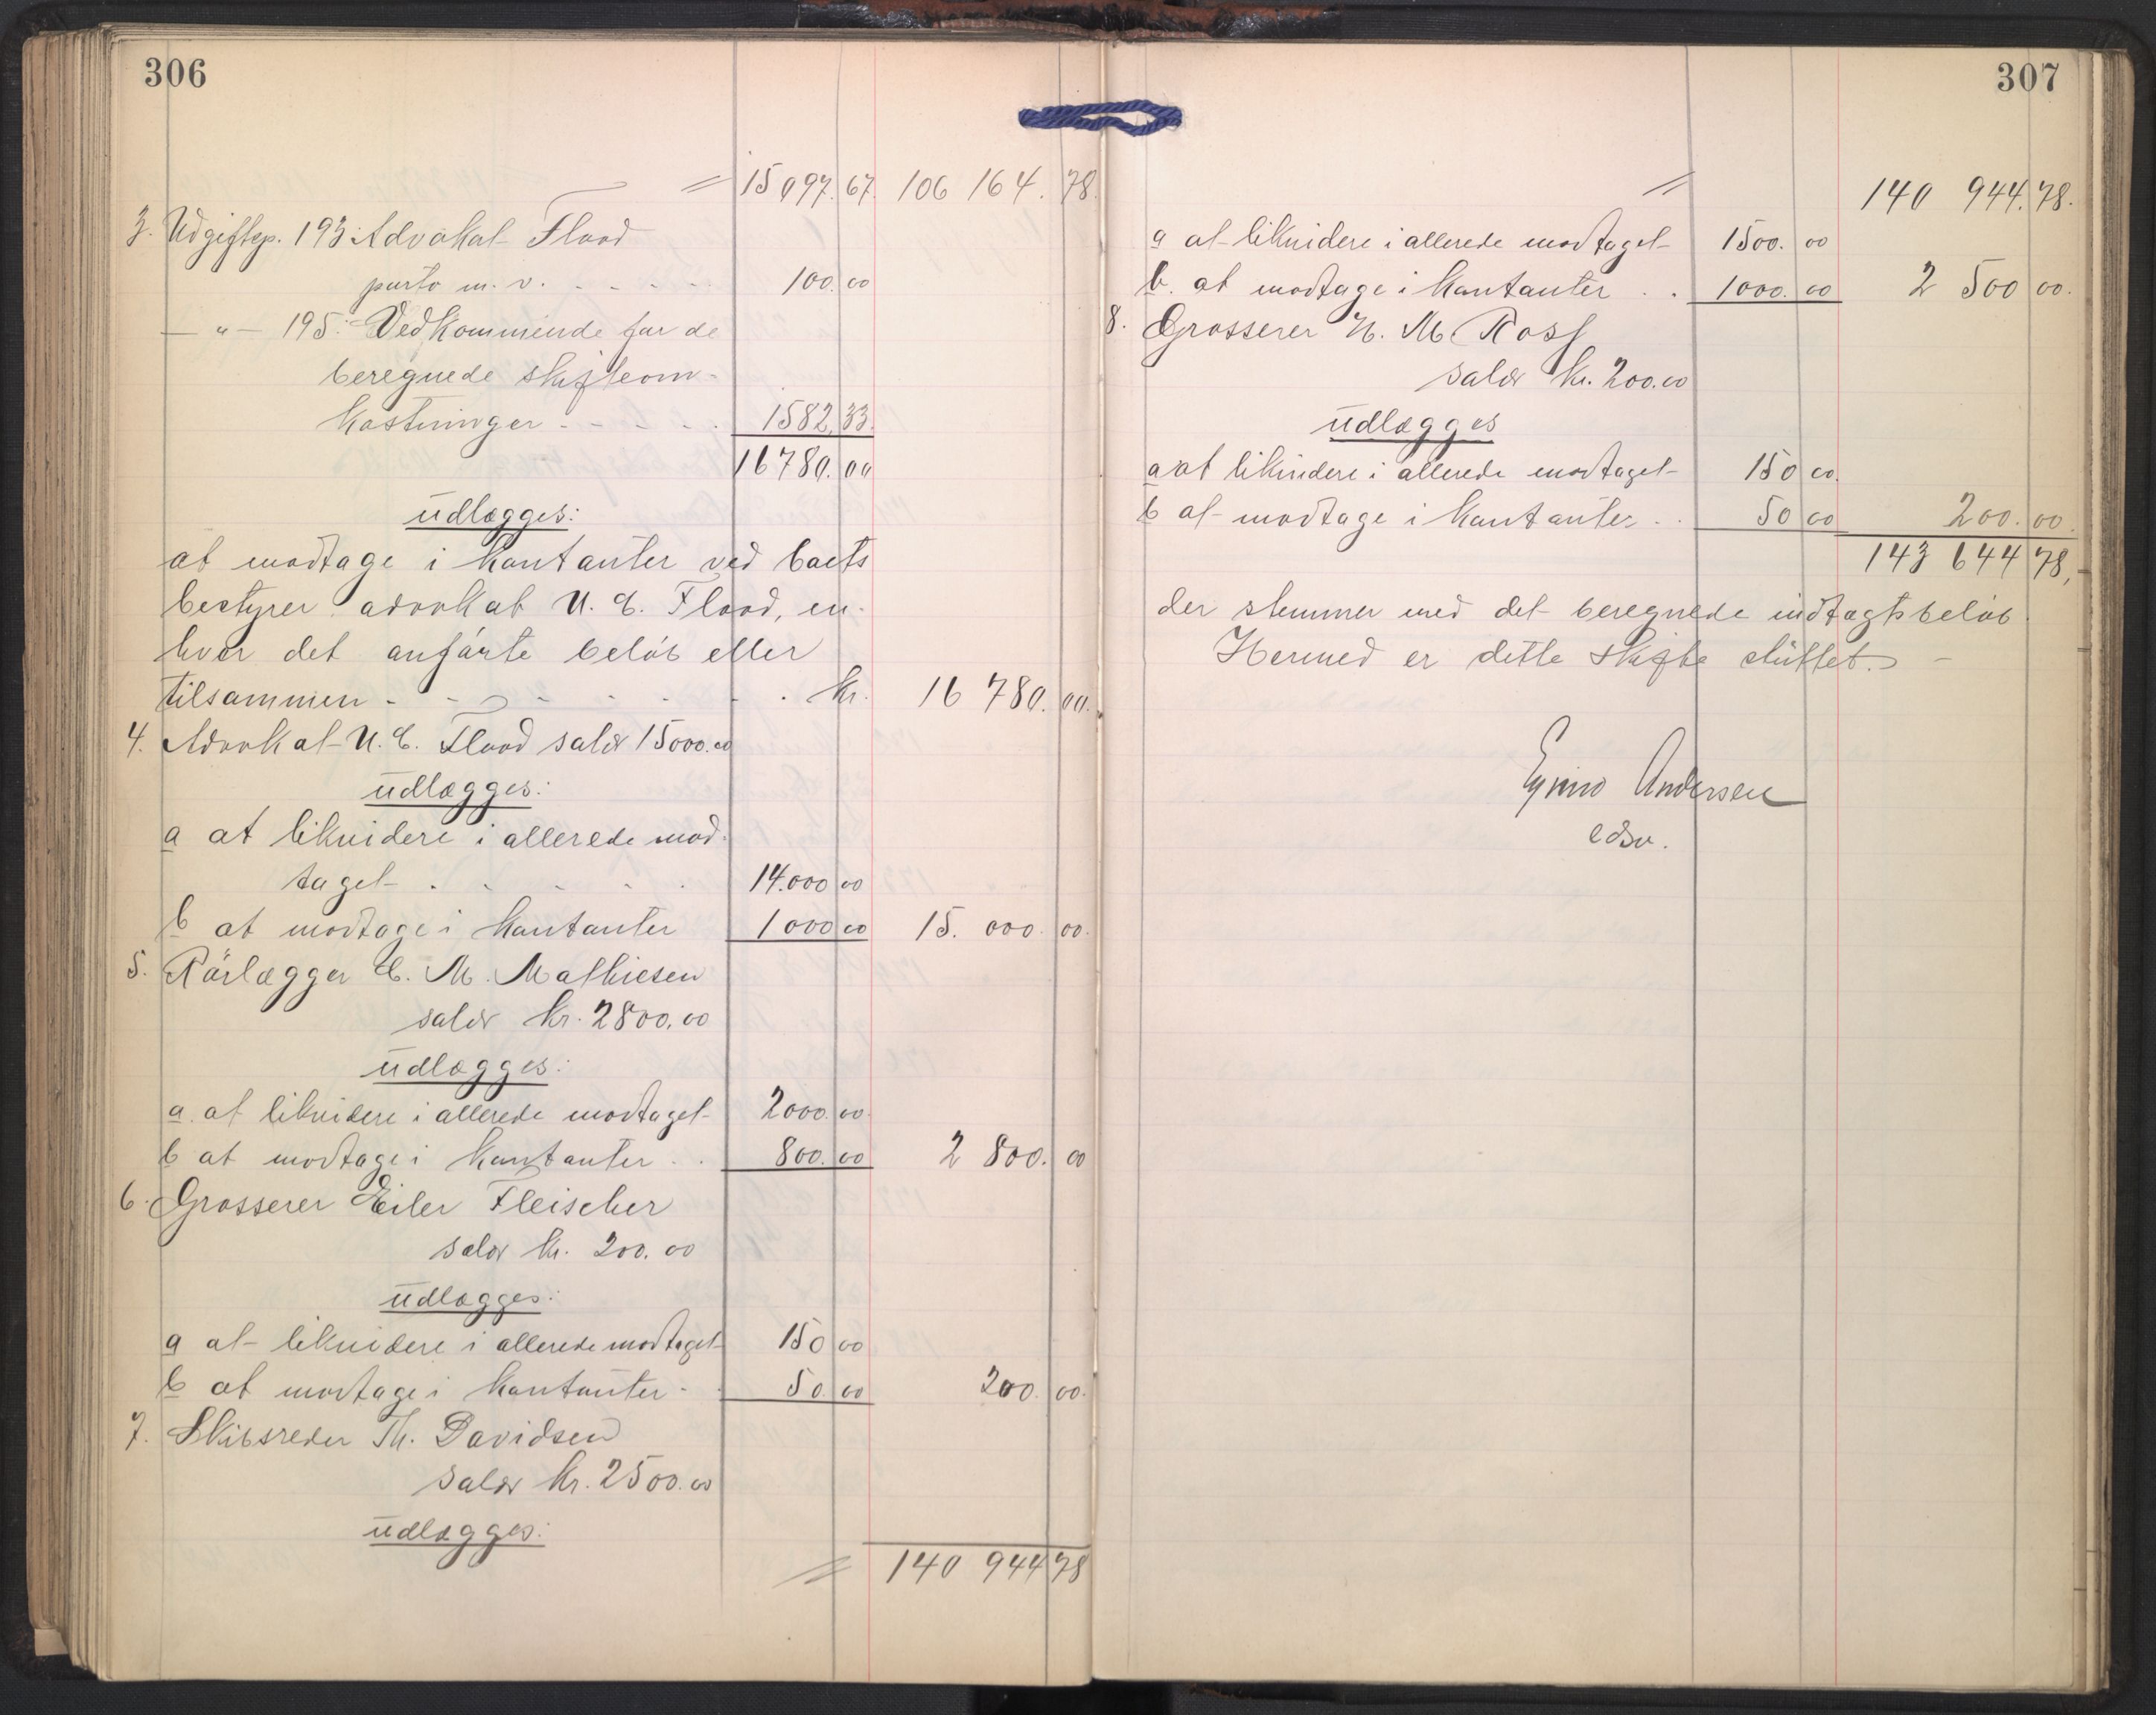 306
= 15 097. 67. 106 164. 78.
3. Udgiftsp. 193: Advokat Flood
porto m. v. - - - - - 100. 00
— " — 195: Vedkommende for de
beregnede skifteom-
kostninger - - - - . 1582. 33.
16780. 00
udlægges:
at modtage i kontanter ved boets
bestyrer advokat U. C. Flood, en-
hver det anførte beløb eller
tilsammen - - - - - - . kr. 16 780. 00.
4. Advokat U. C. Flood salær 15000.00
udlægges:
a at likvidere i allerede mod-
taget - . - - - . 14.000 00
b at modtage i kontanter 1000 00 15. 000. 00.
5. Rørlægger C. M. Mathiesen
salær kr. 2800.00
udlægges:
a. at likvidere i allerede modtaget 2000. 00.
b at modtage i kontanter . . 800. 00 2 800. 00
6. Grosserer Eiler Fleischer
salær kr. 200.00
udlægges:
a at likvidere i allerede modtaget 150 00
b at modtage i kontanter - . 50 00 200. 00.
7. Skibsreder Th. Davidsen
salær kr. 2500.00
udlægges:
= 140 944 78
307
= 140 944. 78.
a at likvidere i allerede modtaget 1500. 00
b. at modtage i kontanter . . 1000. 00 2 500 00.
8. Grosserer H. M. Ross
salær kr. 200.00
udlægges
a at likvidere i allerede modtaget 150 00.
b at modtage i kontanter . . 50 00 200. 00.
143 644 78,-
der stemmer med det beregnede indtægtsbeløb.
Hermed er dette skifte sluttet. -
Andersen
edsv.